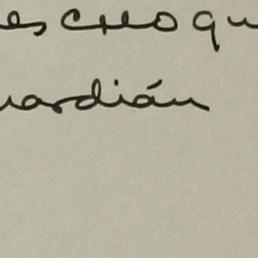 es creo qu
uardián